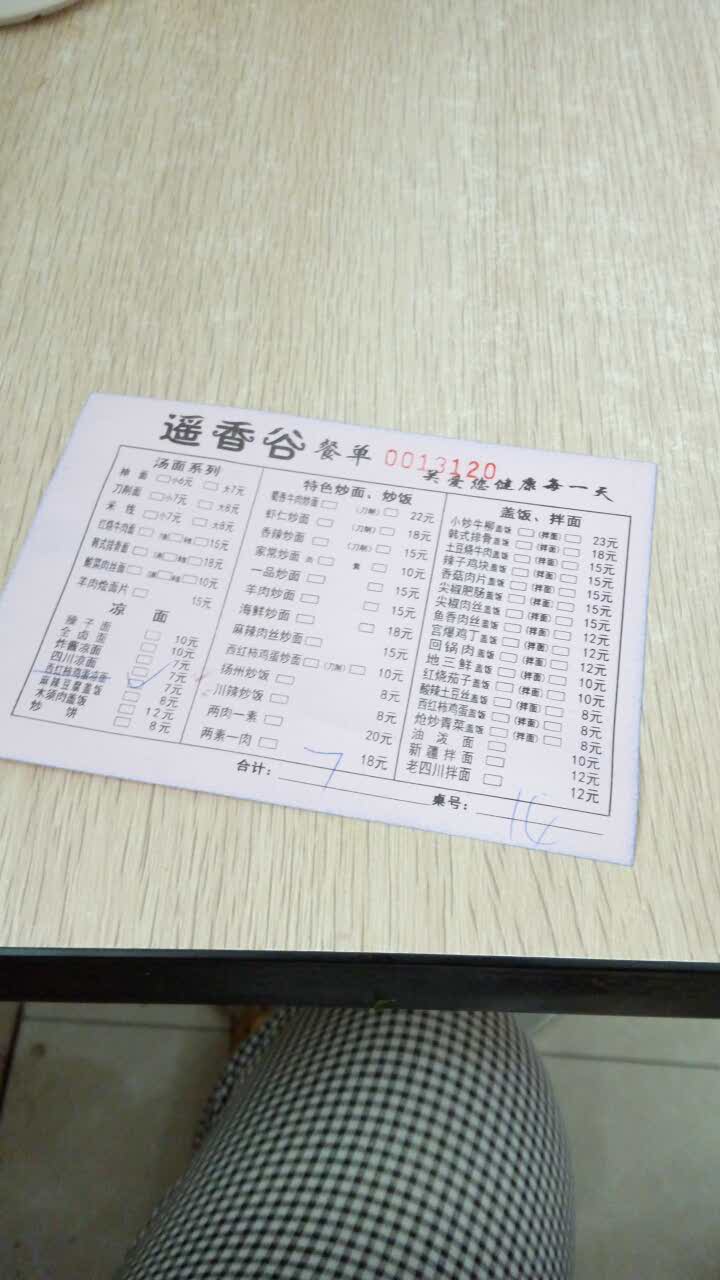 遥香谷 餐单 0013120
关爱您健康每一天
汤面系列
抻面 小6元 大7元
刀削面 小7元 大8元
米线 小7元 大8元
红烧牛肉面 15元
韩式排骨面 18元
酸菜肉丝面 10元
羊肉烩面片 15元
凉面
臊子面 10元
全卤面 10元
炸酱凉面 7元
四川凉面 7元
西红柿鸡蛋凉面 7元
麻辣豆腐盖饭 8元
木须肉盖饭 12元
炒饼 8元
特色炒面、炒饭
蜀香牛肉炒面 (刀削) 22元
虾仁炒面 (刀削) 18元
香辣炒面 (刀削) 15元
家常炒面 肉 素 10元
一品炒面 15元
羊肉炒面 15元
海鲜炒面 18元
麻辣肉丝炒面 15元
西红柿鸡蛋炒面 (刀削) 10元
扬州炒饭 8元
川辣炒饭 8元
两肉一素 20元
两素一肉 18元
盖饭、拌面
小炒牛柳盖饭 (拌面) 23元
韩式排骨盖饭 (拌面) 18元
土豆烧牛肉盖饭 (拌面) 15元
辣子鸡块盖饭 (拌面) 15元
香菇肉片盖饭 (拌面) 15元
尖椒肥肠盖饭 (拌面) 15元
尖椒肉丝盖饭 (拌面) 12元
鱼香肉丝盖饭 (拌面) 12元
宫爆鸡丁盖饭 (拌面) 12元
回锅肉盖饭 (拌面) 12元
地三鲜盖饭 (拌面) 10元
红烧茄子盖饭 (拌面) 10元
酸辣土豆丝盖饭 (拌面) 8元
西红柿鸡蛋盖饭 (拌面) 8元
炝炒青菜盖饭 (拌面) 8元
油泼面 10元
新疆拌面 12元
老四川拌面 12元
合计: 7
桌号: